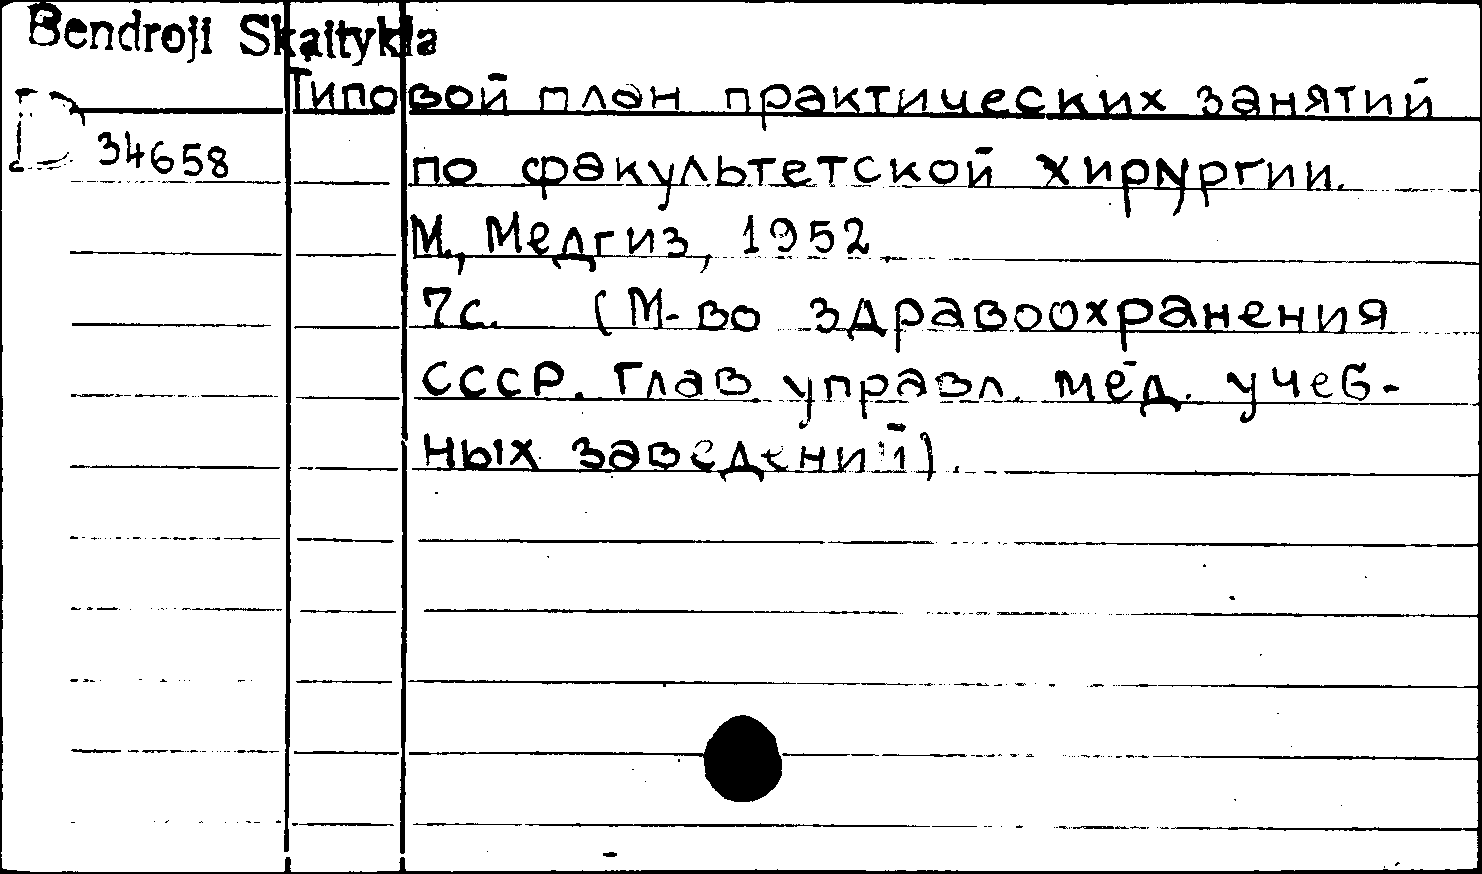 Bendroji Skaitykla
Типовой план практических занятий
D 34658
по факультетской хирургии.
М., Медгиз, 1952
7с. (М-во здравоохранения
СССР. Глав. управл. мед. учеб-
ных заведений).